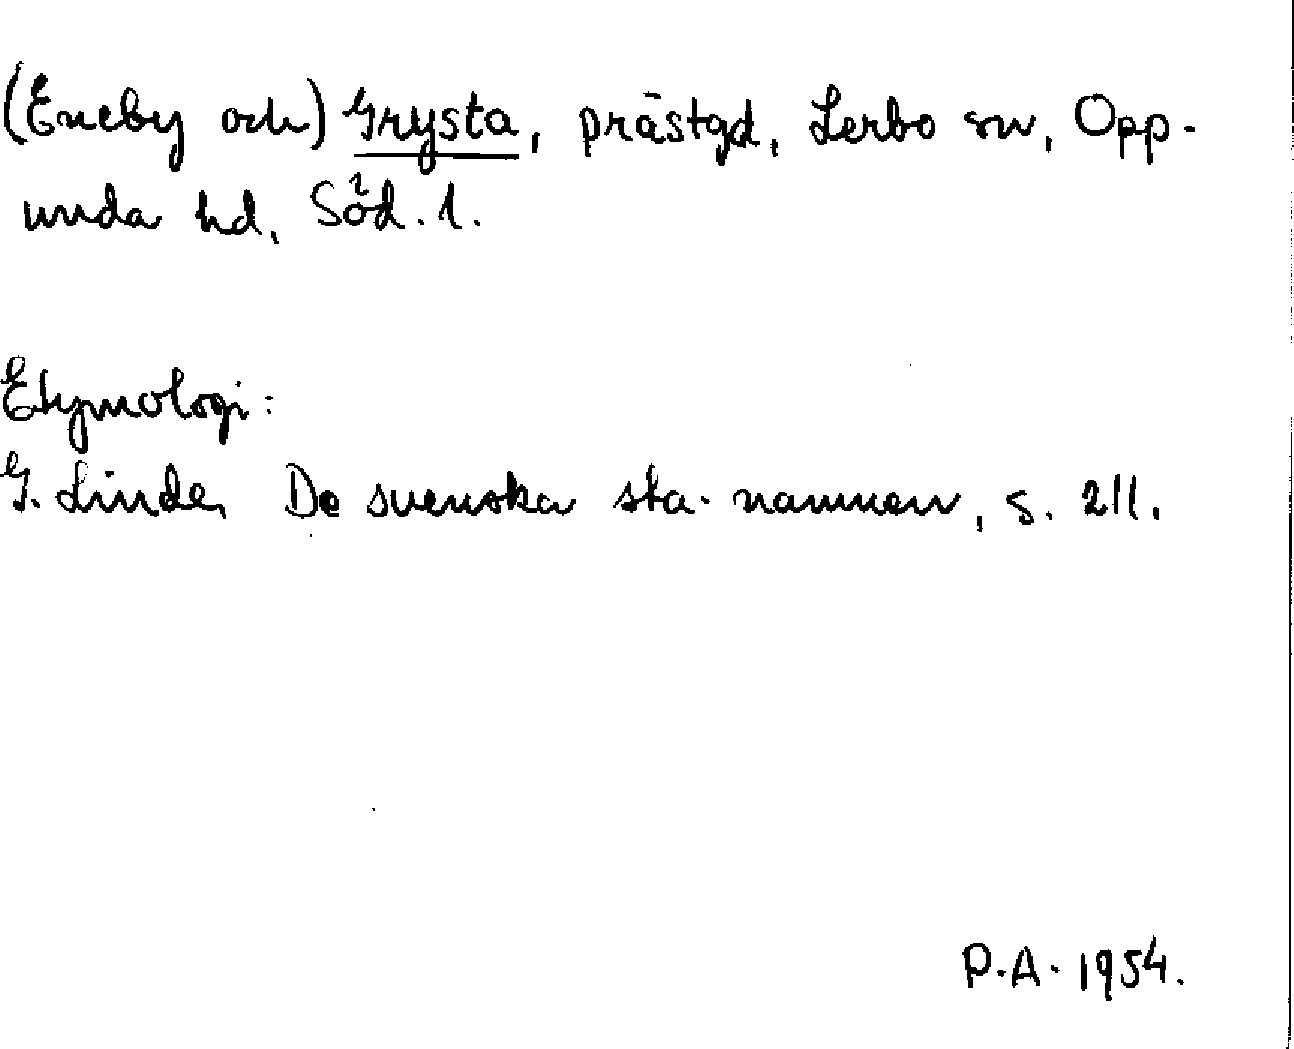 (Eneby och) Grysta, prästgd, Lerbo sn, Opp-
unda hd, Söd. 1.
Etymologi:
G. Linde, De svenska sta-namnen, s. 211.
P.A. 1954.